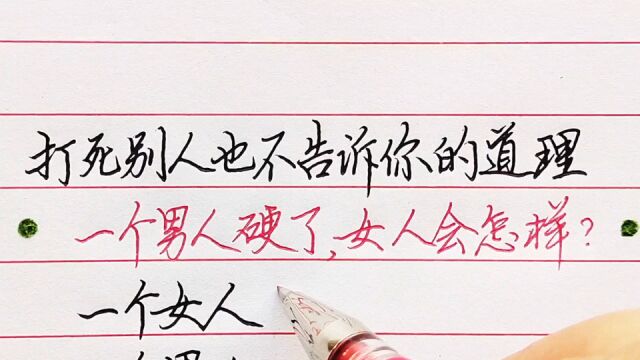 打死别人也不告诉你的道理
一个男人硬了,女人会怎样?
一个女人